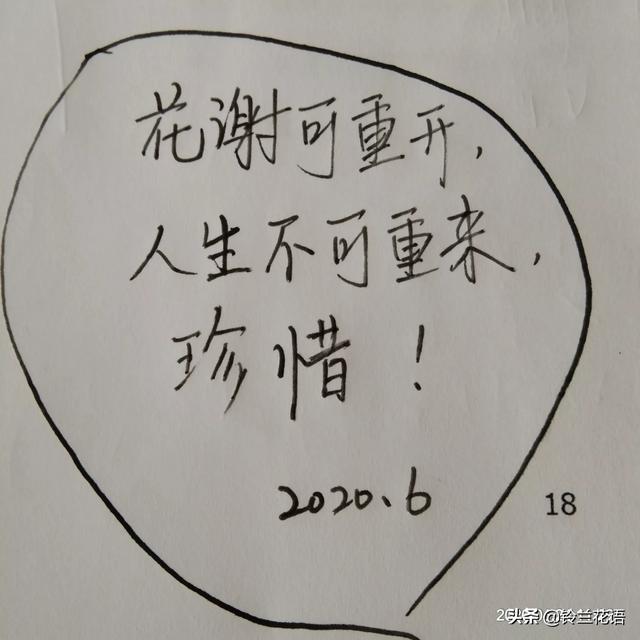 花谢可重开,
人生不可重来,
珍惜!
2020.6
18
头条@铃兰花语